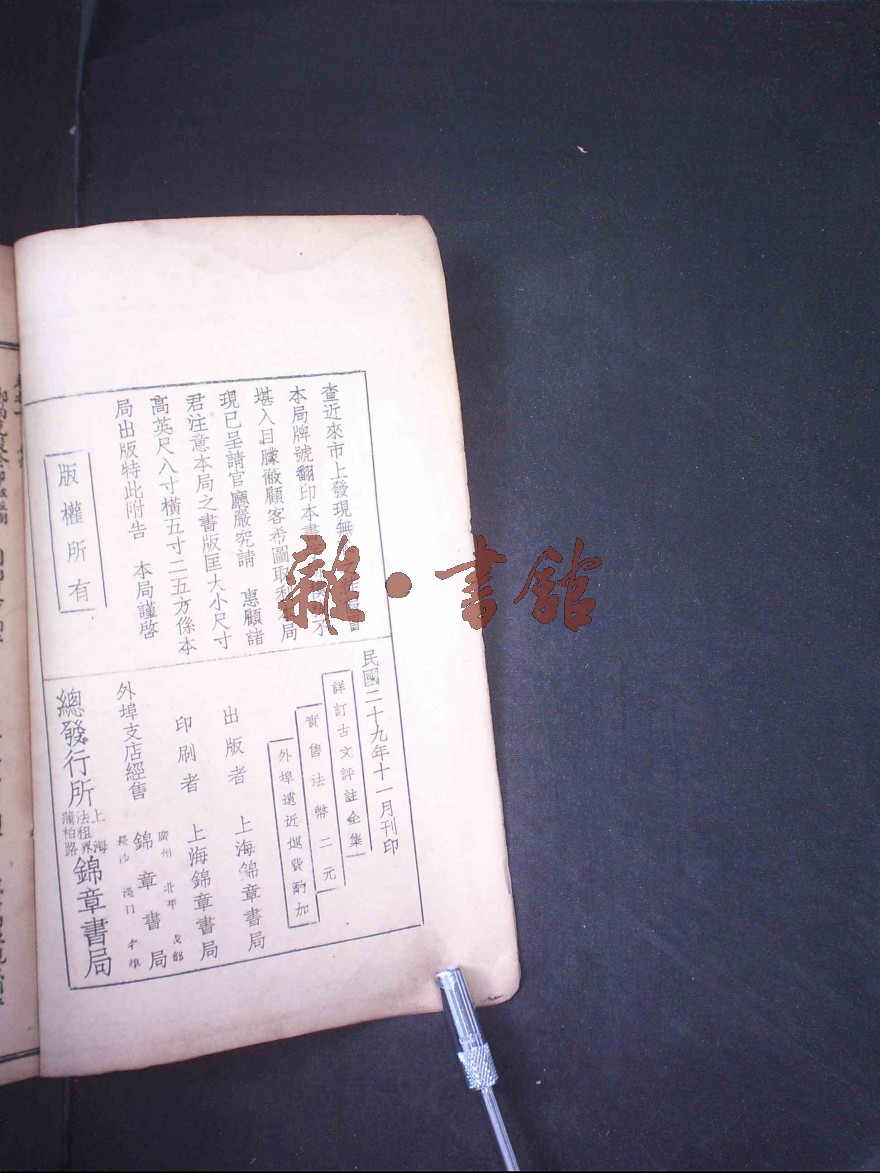 查近來市上發現無
本局牌號翻印本書
堪入目朦蔽顧客希圖取利本局
現已呈請官廳嚴究請 惠顧諸
君注意本局之書版匡大小尺寸
高英尺八寸橫五寸二五方係本
局出版特此附告 本局謹啓
版權所有
民國二十九年十一月刊印
詳訂古文評註全集
實售法幣二元
外埠遠近運費酌加
出版者 上海錦章書局
印刷者 上海錦章書局
外埠支店經售 廣州 北平 成都
錦章書局
長沙 漢口
總發行所 上海
法租界
蒲柏路
錦章書局
雜·書館